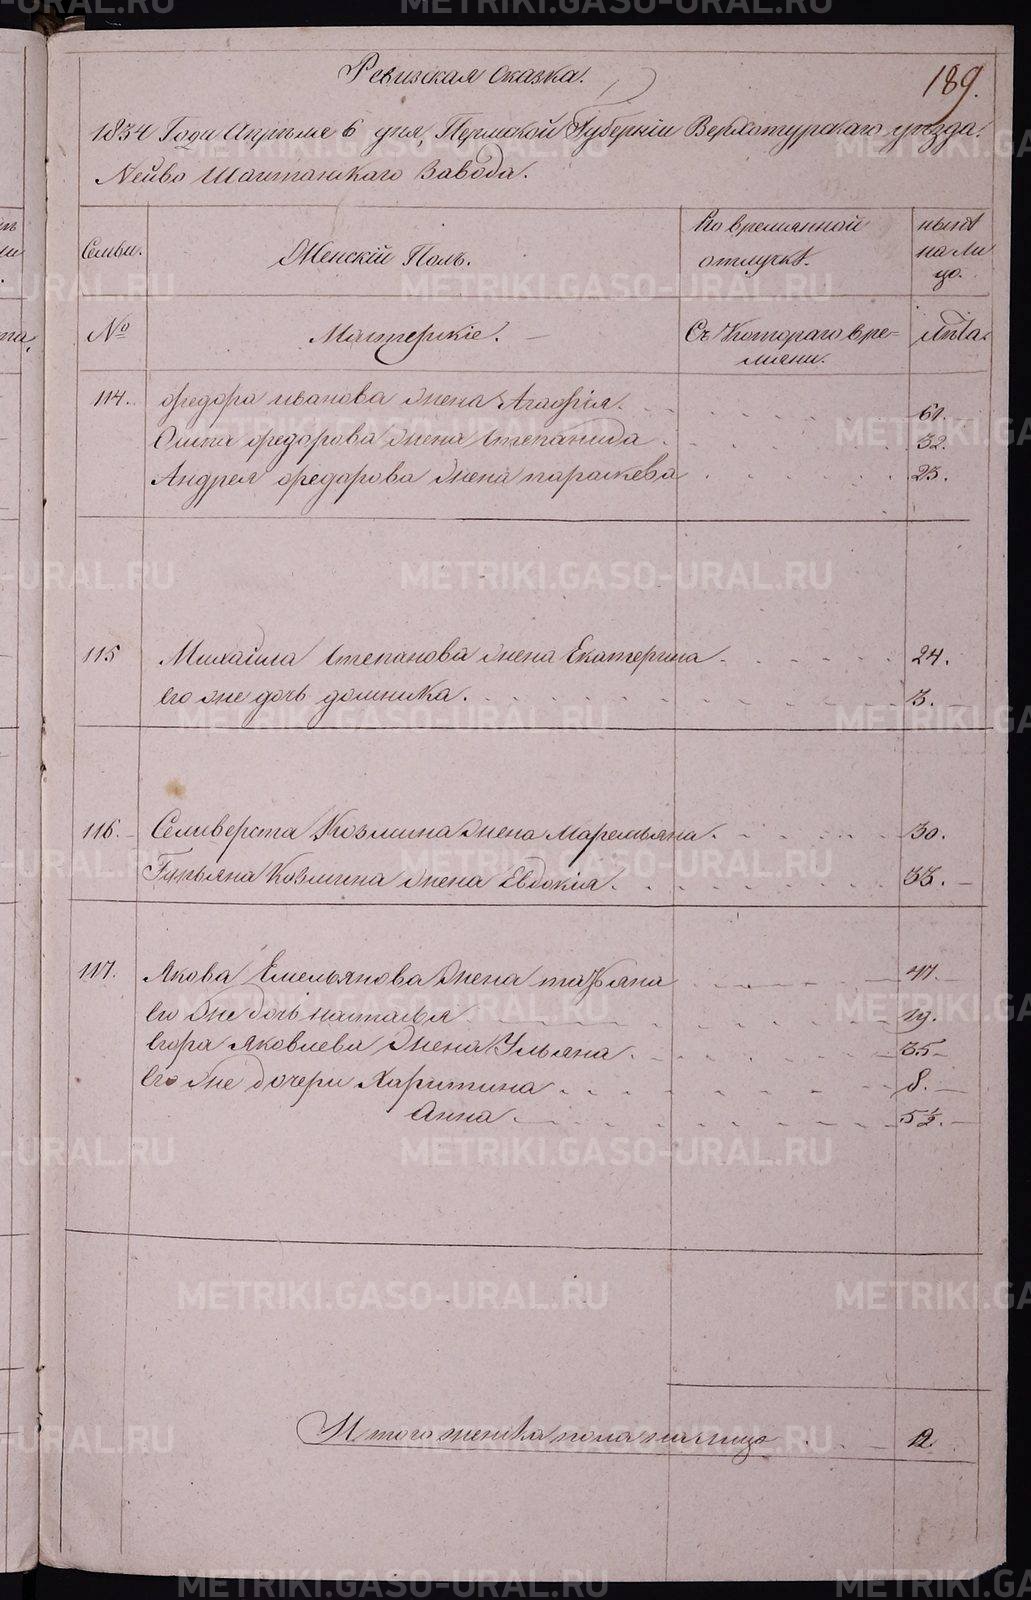 Ревизская Сказка.
189.
1834 Года Апреля 6 дня, Пермской Губерніи Верхотурскаго уезда.
Нейво Шайтанскаго Завода.
Семьи.
Женскій Полъ.
Во временной
отлучкѣ.
нынѣ
на ли
цо.
№
Мастерскіе.
Съ Котораго вре=
мяни.
Лѣта.
114. Федора иванова жена Агафія. 61.
Осипа федорова жена Степанида. 32.
Андрея федарова жена параскева 23.
115 Михаила Степанова жена Екатерина. 24.
Его же дочь домника. 3.
116. Селиверста Козмина жена Маремьяна. 30.
Гурьяна Козмина жена Евдокія. 33.
117. Якова Емельянова жена татьяна 47.
Его же дочь наталья. 19.
Егора Яковлева жена Ульяна. 35
Его же дочери Харитина 8.
Анна. 5½.
Итого женска пола на лицо 12
METRIKI.GASO-URAL.RU